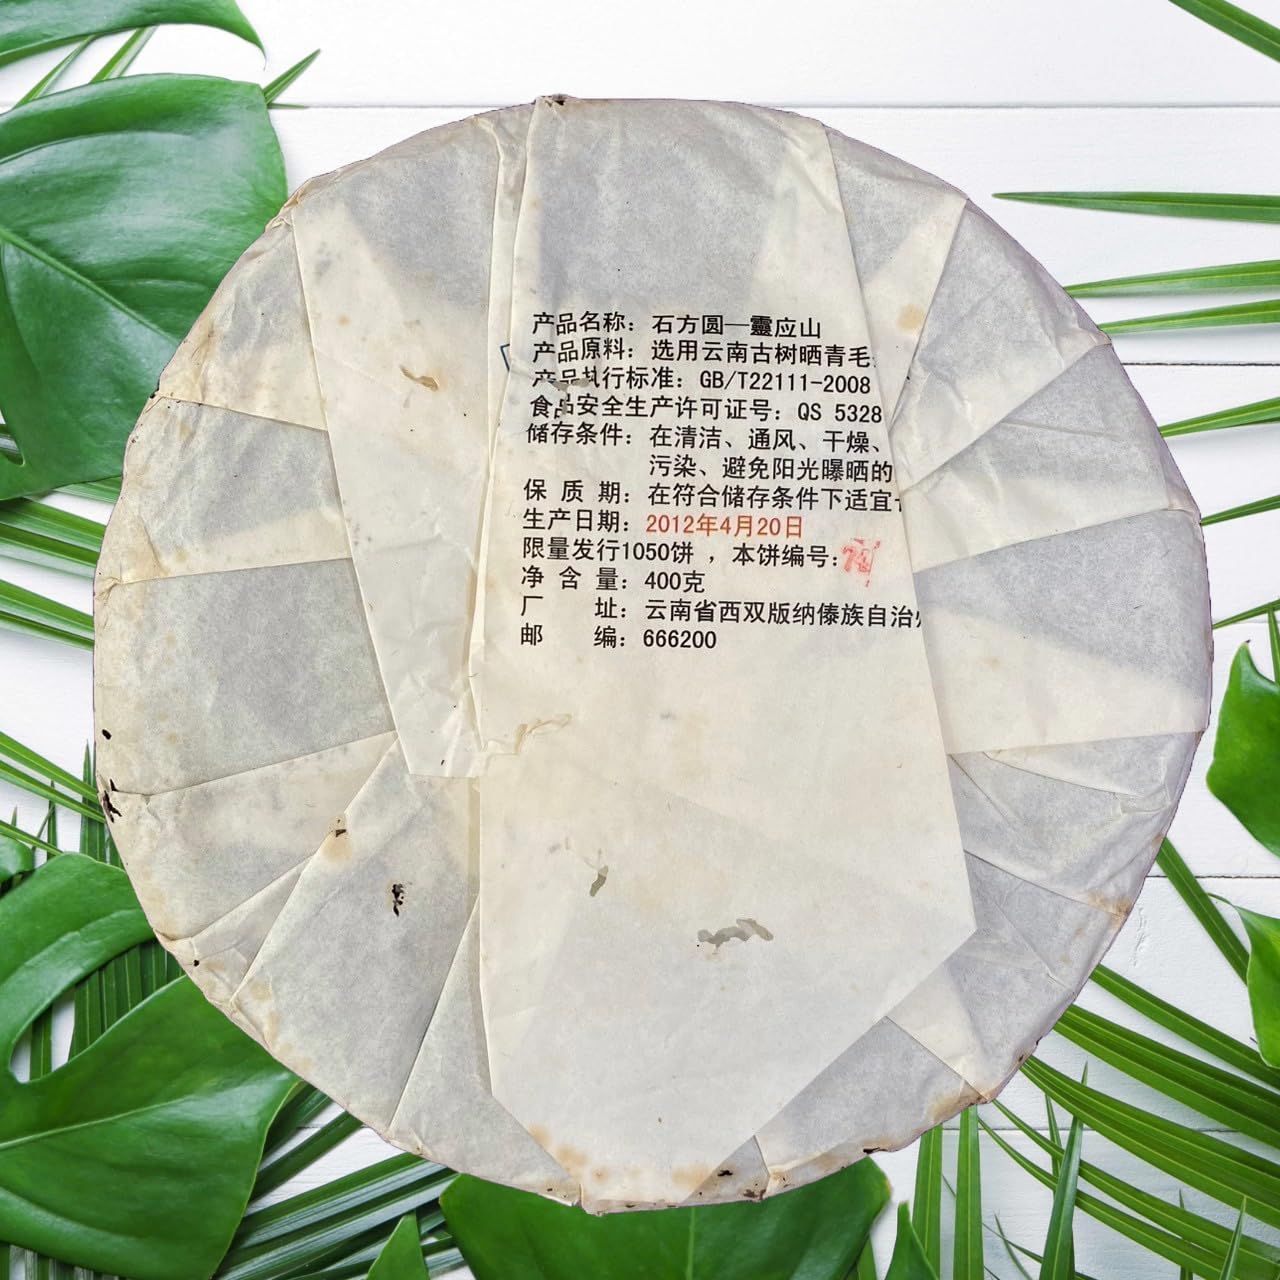 产品名称：石方圆—靈应山
产品原料：选用云南古树晒青毛
产品执行标准：GB/T22111-2008
食品安全生产许可证号：QS 5328
储存条件：在清洁、通风、干燥、
污染、避免阳光曝晒的
保 质 期：在符合储存条件下适宜
生产日期：2012年4月20日
限量发行1050饼 ，本饼编号：
净 含 量：400克
厂 址：云南省西双版纳傣族自治
邮 编：666200